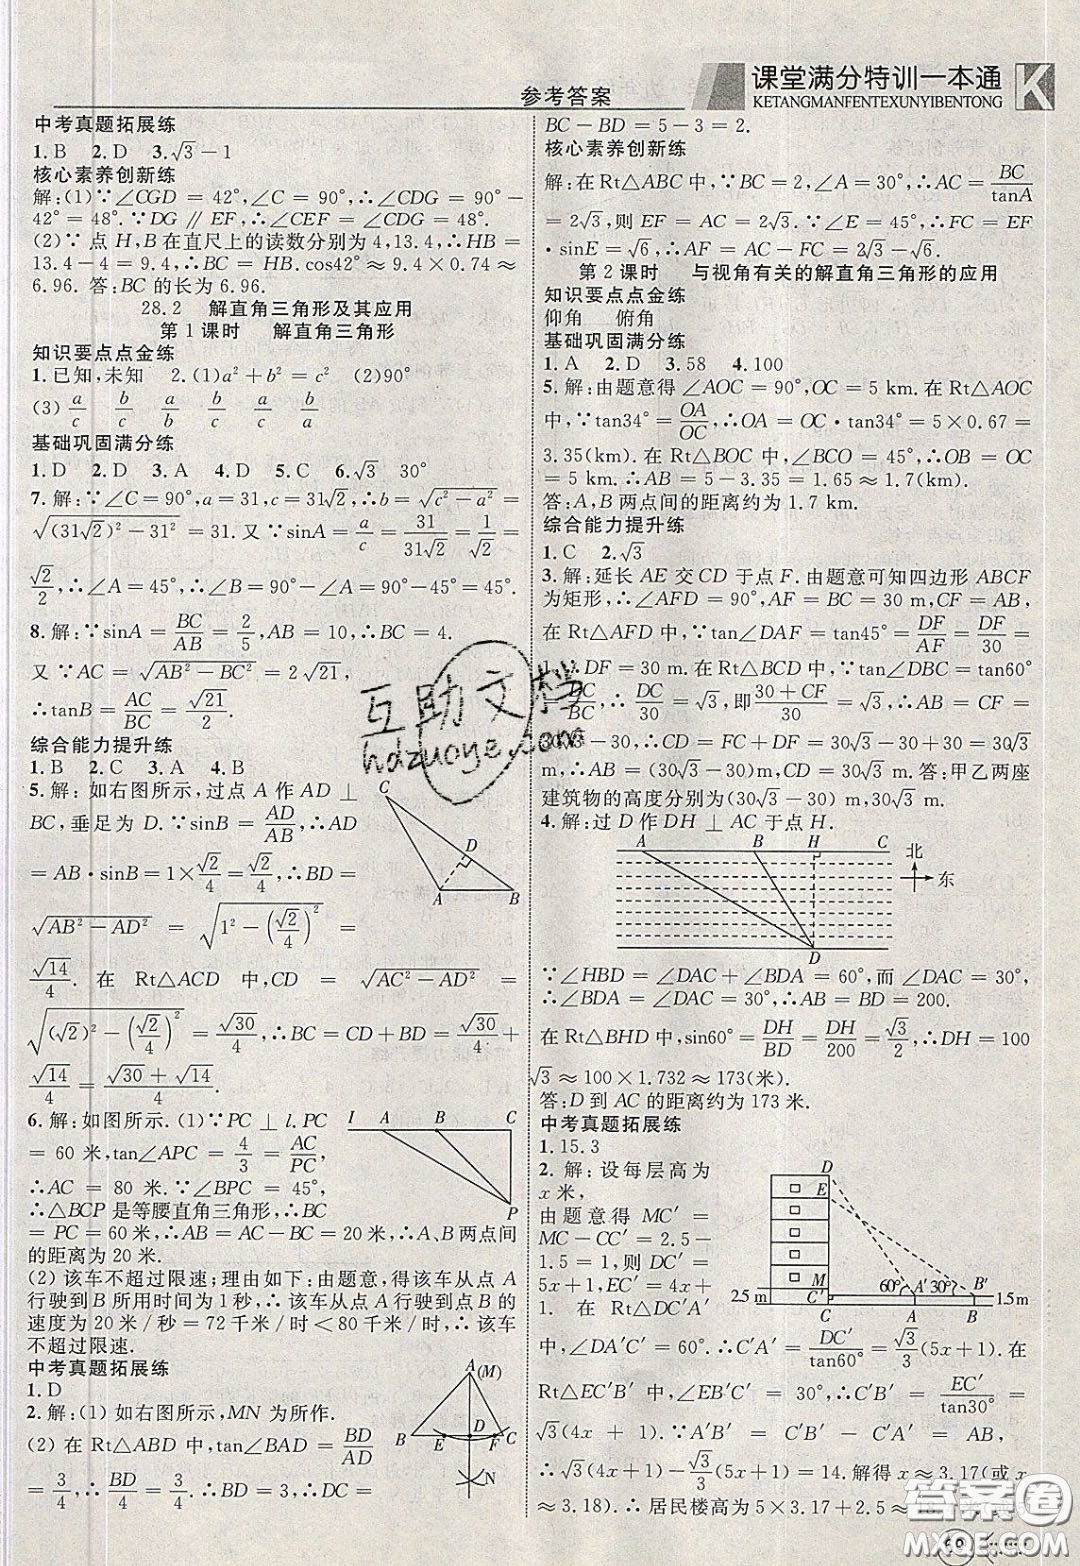 课堂满分特训一本通
KETANGMANFENTEXUNYIBENTONG
K
参考答案
中考真题拓展练
1.B 2.D 3.√3－1
核心素养创新练
解:(1)∵∠CGD＝42°,∠C＝90°,∴∠CDG＝90°－
42°＝48°.∵DG∥EF,∴∠CEF＝∠CDG＝48°.
(2)∵点H,B在直尺上的读数分别为4,13.4,∴HB＝
13.4－4＝9.4,∴BC＝HB.cos42°≈9.4×0.74≈
6.96. 答:BC的长为6.96.
28.2 解直角三角形及其应用
第1课时 解直角三角形
知识要点点金练
1.已知,未知 2.(1)a²＋b²＝c² (2)90°
(3) a/c b/c a/b b/c a/c b/a
基础巩固满分练
1.D 2.D 3.A 4.D 5.C 6.√3 30°
7.解:∵∠C＝90°,a＝31,c＝31√2,∴b＝√(c²－a²)＝
√((31√2)²－31²)＝31.又∵sinA＝a/c＝31/(31√2)＝1/√2＝
√2/2,∴∠A＝45°,∴∠B＝90°－∠A＝90°－45°＝45°.
8.解:∵sinA＝BC/AB＝2/5,AB＝10,∴BC＝4.
又∵AC＝√(AB²－BC²)＝2√21,
∴tanB＝AC/BC＝√21/2.
综合能力提升练
1.B 2.C 3.A 4.B
5.解:如右图所示,过点A作AD⊥
BC,垂足为D.∵sinB＝AD/AB,∴AD
＝AB·sinB＝1×√2/4＝√2/4,∴BD＝
√(AB²－AD²)＝√(1²－(√2/4)²)＝
√14/4. 在Rt△ACD中,CD＝√(AC²－AD²)＝
√((√2)²－(√2/4)²)＝√30/4,∴BC＝CD＋BD＝√30/4＋
√14/4＝(√30＋√14)/4.
C
D
A B
6.解:如图所示.(1)∵PC⊥l.PC
＝60米,tan∠APC＝4/3＝AC/PC,
∴AC＝80米.∵∠BPC＝45°,
∴△BCP是等腰直角三角形,∴BC
＝PC＝60米,∴AB＝AC－BC＝20米.∴A、B两点间
的距离为20米.
I A B C
P
(2)该车不超过限速;理由如下:由题意,得该车从点A
行驶到B所用时间为1秒,∴该车从点A行驶到点B的
速度为20米/秒＝72千米/时＜80千米/时,∴该车
不超过限速.
中考真题拓展练
1.D
2.解:(1)如右图所示,MN为所作.
(2)在Rt△ABD中,tan∠BAD＝BD/AD
＝3/4,∴BD/4＝3/4,∴BD＝3,∴DC＝
A(M)
B E D F C
N
BC－BD＝5－3＝2.
核心素养创新练
解:在Rt△ABC中,∵BC＝2,∠A＝30°,∴AC＝BC/tanA
＝2√3,则EF＝AC＝2√3.∵∠E＝45°,∴FC＝EF
·sinE＝√6,∴AF＝AC－FC＝2√3－√6.
第2课时 与视角有关的解直角三角形的应用
知识要点点金练
仰角 俯角
基础巩固满分练
1.A 2.D 3.58 4.100
5.解:由题意得∠AOC＝90°,OC＝5 km.在Rt△AOC
中,∵tan34°＝OA/OC,∴OA＝OC·tan34°＝5×0.67＝
3.35(km).在Rt△BOC中,∠BCO＝45°,∴OB＝OC
＝5 km.∴AB＝5－3.35＝1.65≈1.7(km).
答:A,B两点间的距离约为1.7 km.
综合能力提升练
1.C 2.√3
3.解:延长AE交CD于点F.由题意可知四边形ABCF
为矩形,∴∠AFD＝90°,AF＝BC＝30 m,CF＝AB,
在Rt△AFD中,∵tan∠DAF＝tan45°＝DF/AF＝DF/30＝
1,∴DF＝30 m.在Rt△BCD中,∵tan∠DBC＝tan60°
＝DC/BC,∴DC/30＝√3,即(30＋CF)/30＝√3,∴AB＝CF＝
30√3－30,∴CD＝FC＋DF＝30√3－30＋30＝30√3
m,∴AB＝(30√3－30) m,CD＝30√3 m. 答:甲乙两座
建筑物的高度分别为(30√3－30) m,30√3 m.
4.解:过D作DH⊥AC于点H.
A B H C
北
东
D
∵∠HBD＝∠DAC＋∠BDA＝60°,而∠DAC＝30°,
∴∠BDA＝∠DAC＝30°,∴AB＝DB＝200.
在Rt△BHD中,sin60°＝DH/BD＝DH/200＝√3/2,∴DH＝100
√3≈100×1.732≈173(米).
答:D到AC的距离约为173米.
中考真题拓展练
1.15.3
2.解:设每层高为
x米,
由题意得MC′＝
MC－CC′＝2.5－
1.5＝1,∴DC′＝
5x＋1,EC′＝4x＋
1. 在Rt△DC′A′
中,∠DA′C′＝60°,∴C′A′＝DC′/tan60°＝√3/3(5x＋1).在
Rt△EC′B′中,∠EB′C′＝30°,∴C′B′＝EC′/tan30°＝
√3(4x＋1).∵A′B′＝C′B′－C′A′＝AB,
∴√3(4x＋1)－√3/3(5x＋1)＝14.解得x≈3.17(或x≈
3.18).∴居民楼高为5×3.17＋2.5≈
D
E
M
2.5 m C′ 60° A′ 30° B′ 1.5 m
C A B
互助文档
hdzuoye.com
答案圈
MXQE.COM